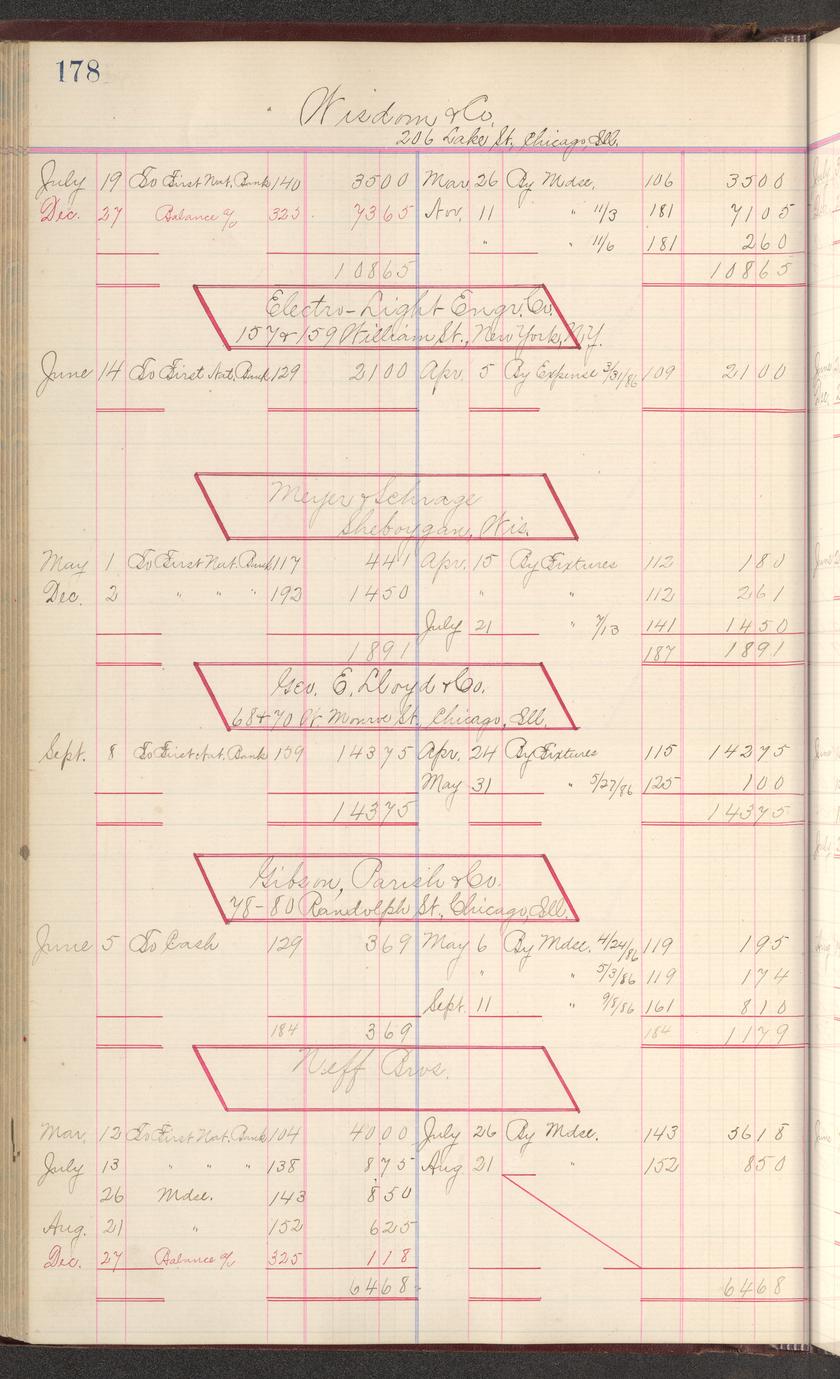 178
Wisdom & Co.
206 Lake St, Chicago, Ill.
July 19 To First Nat. Bank 140 3500 Mar. 26 By Mdse. 106 3500
Dec. 27 Balance % 325 7365 Nov. 11 " 11/3 181 7105
" " 11/6 181 260
10865 10865
Electro-Light Engr. Co.
157 & 159 William St., New York, N.Y.
June 14 To First Nat. Bank 129 2100 Apr. 5 By Expense 3/31/86 109 2100
Meyer & Schrage
Sheboygan, Wis.
May 1 To First Nat. Bank 117 441 Apr. 15 By Fixtures 112 180
Dec. 2 " " " 192 1450 " " 112 261
July 21 " 7/13 141 1450
1891 187 1891
Geo. E. Lloyd & Co.
68 & 70 W. Monroe St., Chicago, Ill.
Sept. 8 To First Nat. Bank 159 14375 Apr. 24 By Fixtures 115 14275
May 31 " 5/27/86 125 100
14375 14375
Gibson, Parish & Co.
78-80 Randolph St., Chicago, Ill.
June 5 To Cash 129 369 May 6 By Mdse. 4/24/86 119 195
" " 5/3/86 119 174
Sept. 11 " 9/8/86 161 810
184 369 184 1179
Neff Bros.
Mar. 12 To First Nat. Bank 104 4000 July 26 By Mdse. 143 5618
July 13 " " " 138 875 Aug. 21 " 152 850
26 Mdse. 143 850
Aug. 21 " 152 625
Dec. 27 Balance % 325 118
6468 6468